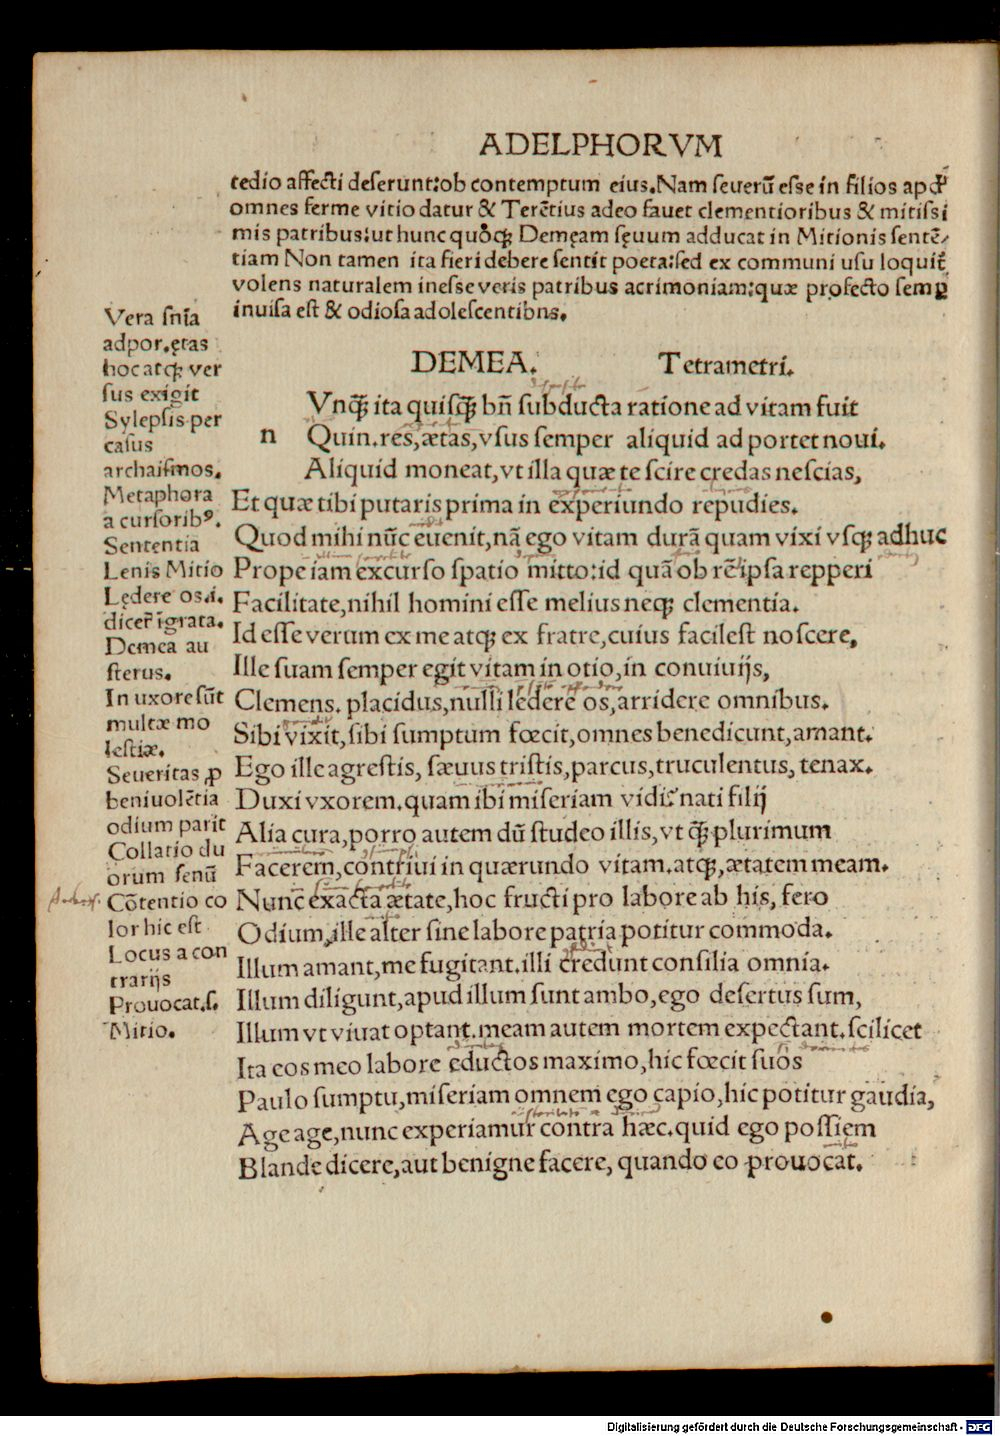 ADELPHORVM
tedio affecti deserunt:ob contemptum eius.Nam seuerū esse in filios apd̄
omnes ferme vitio datur & Terētius adeo fauet clementioribus & mitissi
mis patribus:ut hunc quoqꝫ Demęam sęuum adducat in Mitionis sentē/
tiam Non tamen ita fieri debere sentit poeta:sed ex communi usu loquit̄
volens naturalem inesse veris patribus acrimoniam:quæ profecto semꝑ
inuisa est & odiosa adolescentibns.
Vera sn̄ia
adpor.ętas
hoc atqꝫ ver
sus exigit
Sylepsis per
casus
archaismos.
Metaphora
a cursoribꝰ.
Sententia
Lenis Mitio
Lędere os.i.
dicer̄ īgrata.
Demea au
sterus.
In uxore sūt
multæ mo
lestiæ.
Seueritas ꝓ
beniuolētia
odium parit
Collatio du
orum senū
Cōtentio co
lor hic est
Locus a con
trarijs
Prouocat.s.
Mitio.
DEMEA. Tetrametri.
Vnqꝫ̄ ita quisqꝫ̄ bn̄ subducta ratione ad vitam fuit
n Quin.res,ætas,vsus semper aliquid ad portet noui.
Aliquid moneat,vt illa quæ te scire credas nescias,
Et quæ tibi putaris prima in experiundo repudies.
Quod mihi nūc euenit,nā ego vitam durā quam vixi vsqꝫ adhuc
Prope iam excurso spatio mitto:id quā ob rē ipsa repperi
Facilitate,nihil homini esse melius neqꝫ clementia.
Id esse verum ex me atqꝫ ex fratre,cuius facilest noscere,
Ille suam semper egit vitam in otio,in conuiuijs,
Clemens. placidus,nulli lędere os,arridere omnibus.
Sibi vixit,sibi sumptum fœcit,omnes benedicunt,amant.
Ego ille agrestis, sæuus tristis,parcus,truculentus, tenax.
Duxi vxorem.quam ibi miseriam vidi? nati filij
Alia cura,porro autem dū studeo illis,vt qꝫ̄ plurimum
Facerem,contriui in quærundo vitam.atqꝫ,ætatem meam.
Nunc exacta ætate,hoc fructi pro labore ab his, fero
Odium,ille alter sine labore patria potitur commoda.
Illum amant,me fugitant.illi credunt consilia omnia.
Illum diligunt,apud illum sunt ambo,ego desertus sum,
Illum vt viuat optant.meam autem mortem expectant.scilicet
Ita eos meo labore eductos maximo,hic fœcit suos
Paulo sumptu,miseriam omnem ego capio,hic potitur gaudia,
Age age,nunc experiamur contra hæc.quid ego possiem
Blande dicere,aut benigne facere, quando eo prouocat.
Digitalisierung gefördert durch die Deutsche Forschungsgemeinschaft - DFG